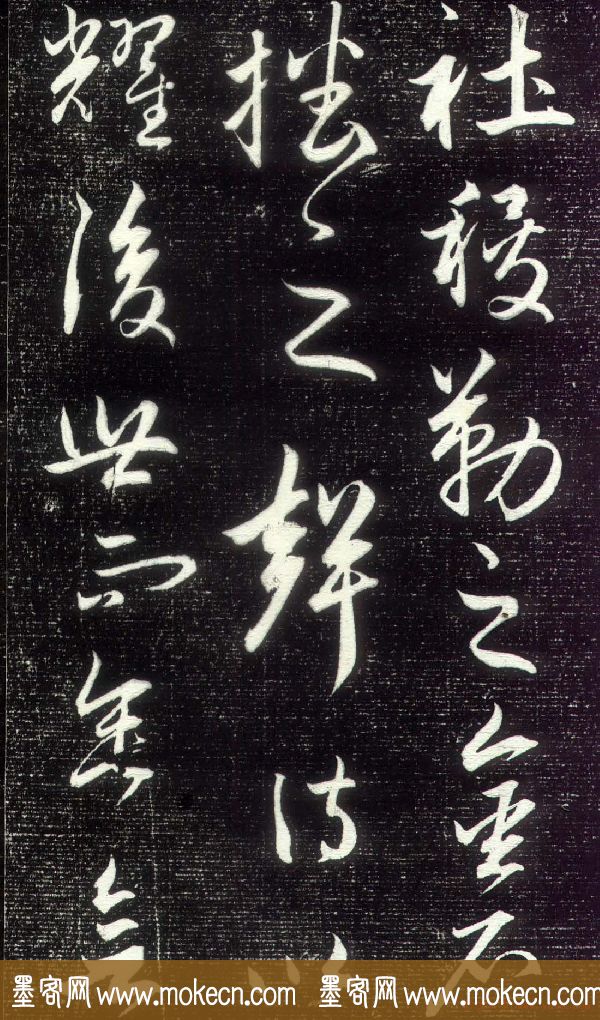 社稷勒之金石
播之聲詩以
耀後世而垂無
墨客网 www.mokecn.com 墨客网 www.mokecn.com